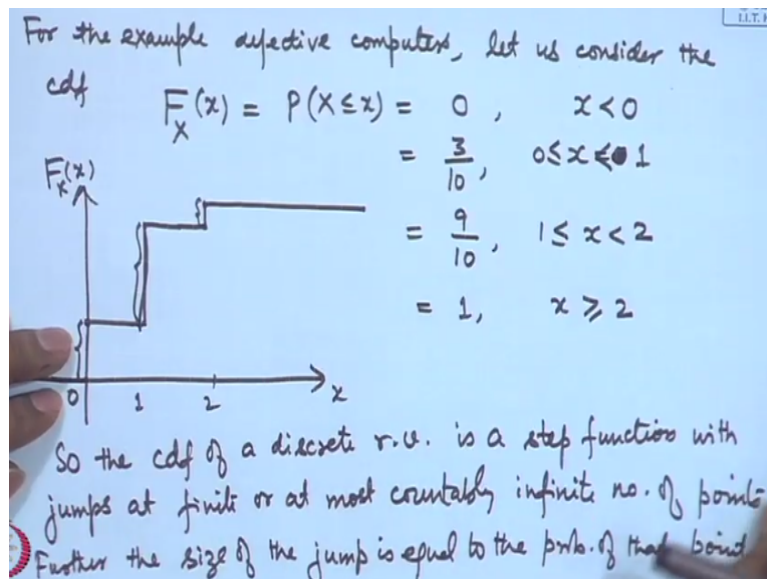 I.I.T.
For the example defective computers, let us consider the
cdf F_X(x) = P(X≤x) = 0, x<0
= 3/10, 0≤x<1
= 9/10, 1≤x<2
= 1, x≥2
F_X(x)
0 1 2 x
So the cdf of a discrete r.v. is a step function with
jumps at finite or at most countably infinite no. of points
Further the size of the jump is equal to the prob. of that point